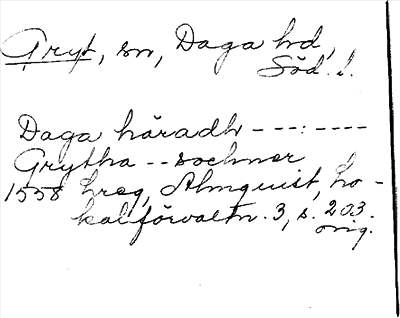 Gryt, sn, Daga hd,
Söd. l.
Daga häradh ---:----
Grytha -- sochner
1558 hreg, Almquist, Lo-
kalförvaltn. 3, s. 203.
orig.